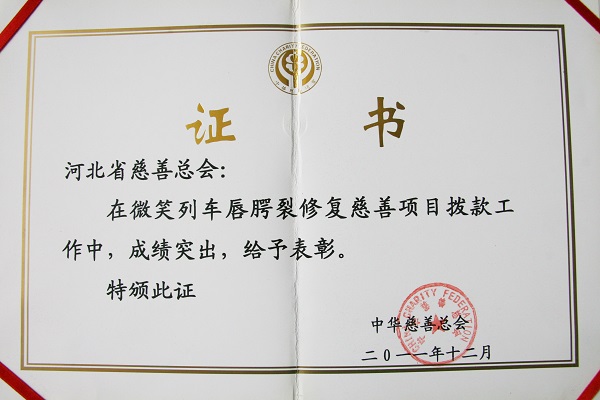 CHINA CHARITY FEDERATION
证 书
河北省慈善总会：
在微笑列车唇腭裂修复慈善项目拨款工
作中，成绩突出，给予表彰。
特颁此证
中华慈善总会
二〇一一年十二月
CHINA CHARITY FEDERATION
中华慈善总会